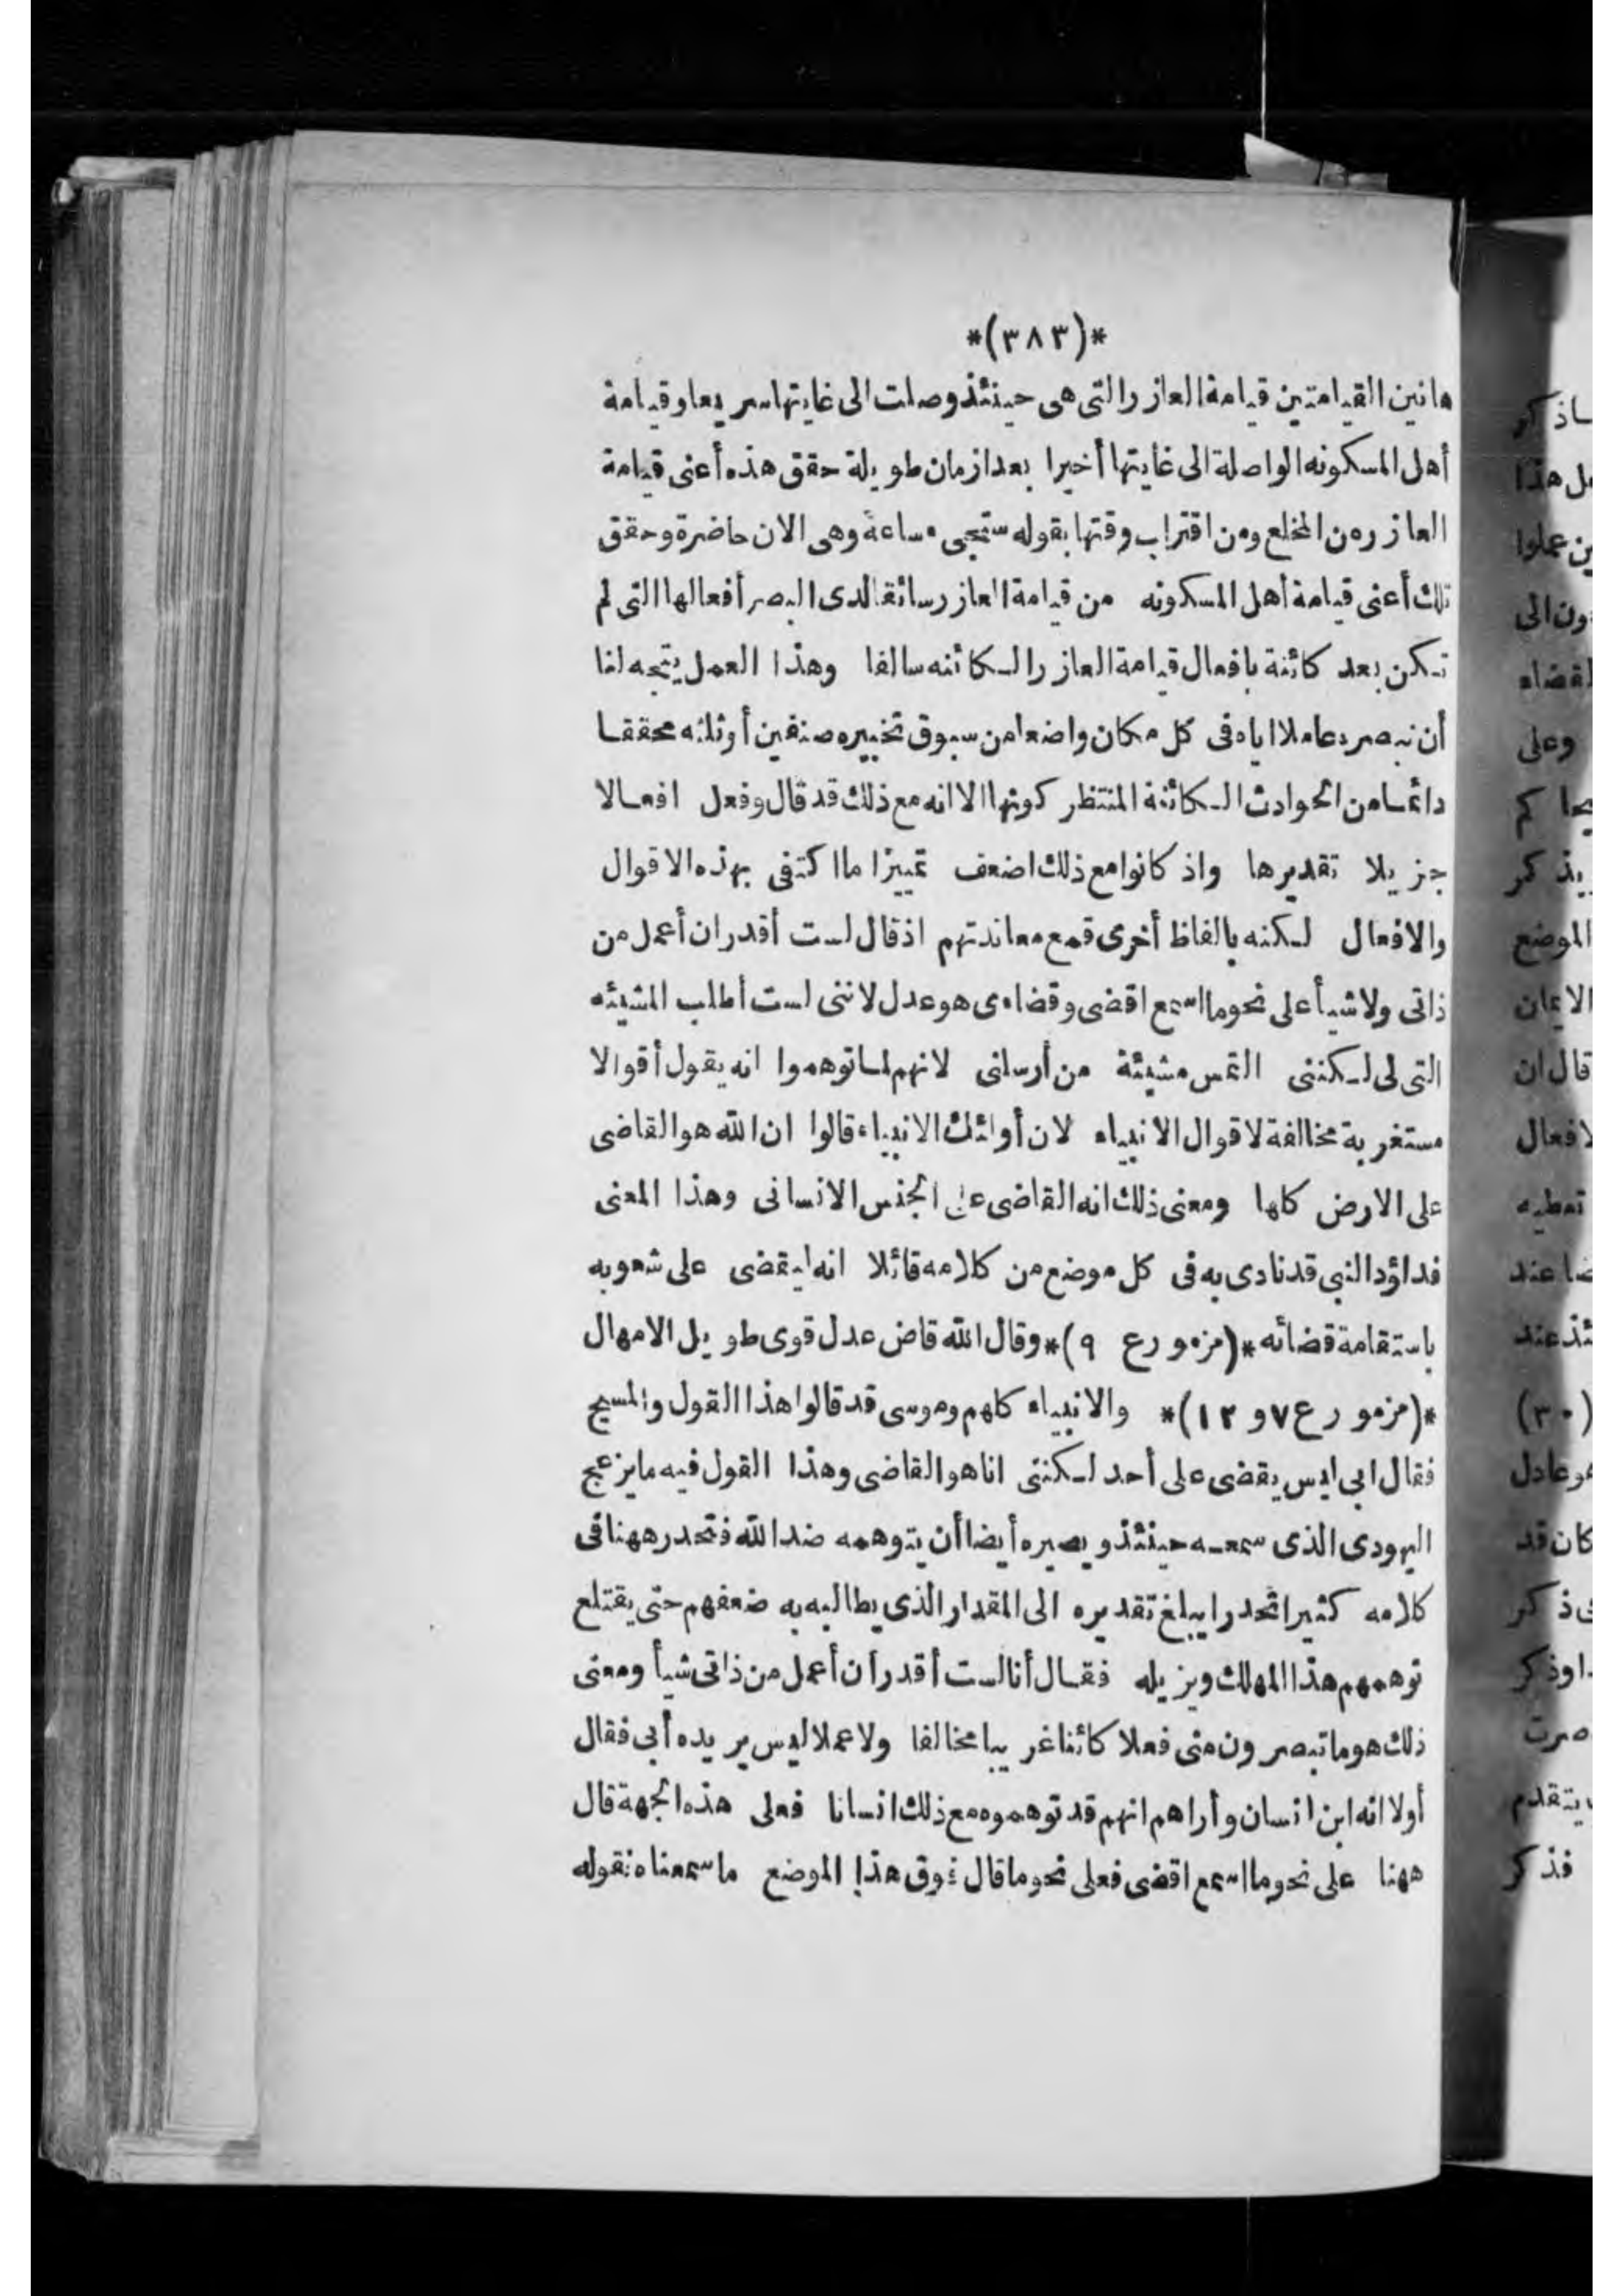 *(٣٨٣)*
هاتين القيامتين قيامة العازر التى هى حينئذ وصلت الى غايتها سريعا وقيامة
أهل المسكونه الواصلة الى غايتها أخيرا بعد ازمان طويلة حقق هذه أعنى قيامة
العازر من المخلع ومن اقتراب وقتها بقوله ستجىء ساعة وهى الان حاضرة وحقق
تلك أعنى قيامة أهل المسكونه من قيامة العازر سائقا لدى البصر أفعالها التى لم
تكن بعد كائنة بافعال قيامة العازر الكائنه سالفا وهذا العمل يتجه لنا
أن نبصره عاملا اياه فى كل مكان واضعا من سبوق تخييره صنفين أو ثلثه محققا
دائما من الحوادث الكائنة المنتظر كونها الا انه مع ذلك قد قال وفعل افعالا
جزيلا تقديرها واذ كانوا مع ذلك اضعف تمييزا ما اكتفى بهذه الاقوال
والافعال لكنه بالفاظ أخرى قمع معاندتهم اذ قال لست أقدر ان أعمل من
ذاتى ولا شيأ على نحو ما اسمع اقضى وقضاءى هو عدل لاننى لست أطلب المشيئه
التى لى لكننى التمس مشيئة من أرسلنى لانهم لما توهموا انه يقول أقوالا
مستغربة مخالفة لاقوال الانبياء لان أوائك الانبياء قالوا ان الله هو القاضى
على الارض كلها ومعنى ذلك انه القاضى على الجنس الانسانى وهذا المعنى
فداؤد النبى قد نادى به فى كل موضع من كلامه قائلا انه ليقضى على شعوبه
باستقامة قضائه *(مزمور ع ٩)* وقال الله قاض عدل قوى طويل الامهال
*(مزمور ع ٧ و ١٢)* والانبياء كلهم وموسى قد قالوا هذا القول والمسيح
فقال ابى ليس يقضى على أحد لكننى انا هو القاضى وهذا القول فيه ما يزعج
اليهودى الذى سمعه حينئذ ويصيره أيضا أن يتوهمه ضد الله فتحدر ههنا فى
كلامه كثيرا تحدرا يبلغ تقديره الى المقدار الذى يطالبه به ضعفهم حتى يقتلع
توهمهم هذا المهلك ويزيله فقال أنا لست أقدر أن أعمل من ذاتى شيأ ومعنى
ذلك هو ما تبصرون منى فعلا كائنا غريبا مخالفا ولا عملا ليس يريده أبى فقال
أولا انه ابن انسان وأراهم انهم قد توهموه مع ذلك انسانا فعلى هذه الجهة قال
ههنا على نحو ما اسمع اقضى فعلى نحو ما قال فوق هذا الموضع ما سمعناه نقوله